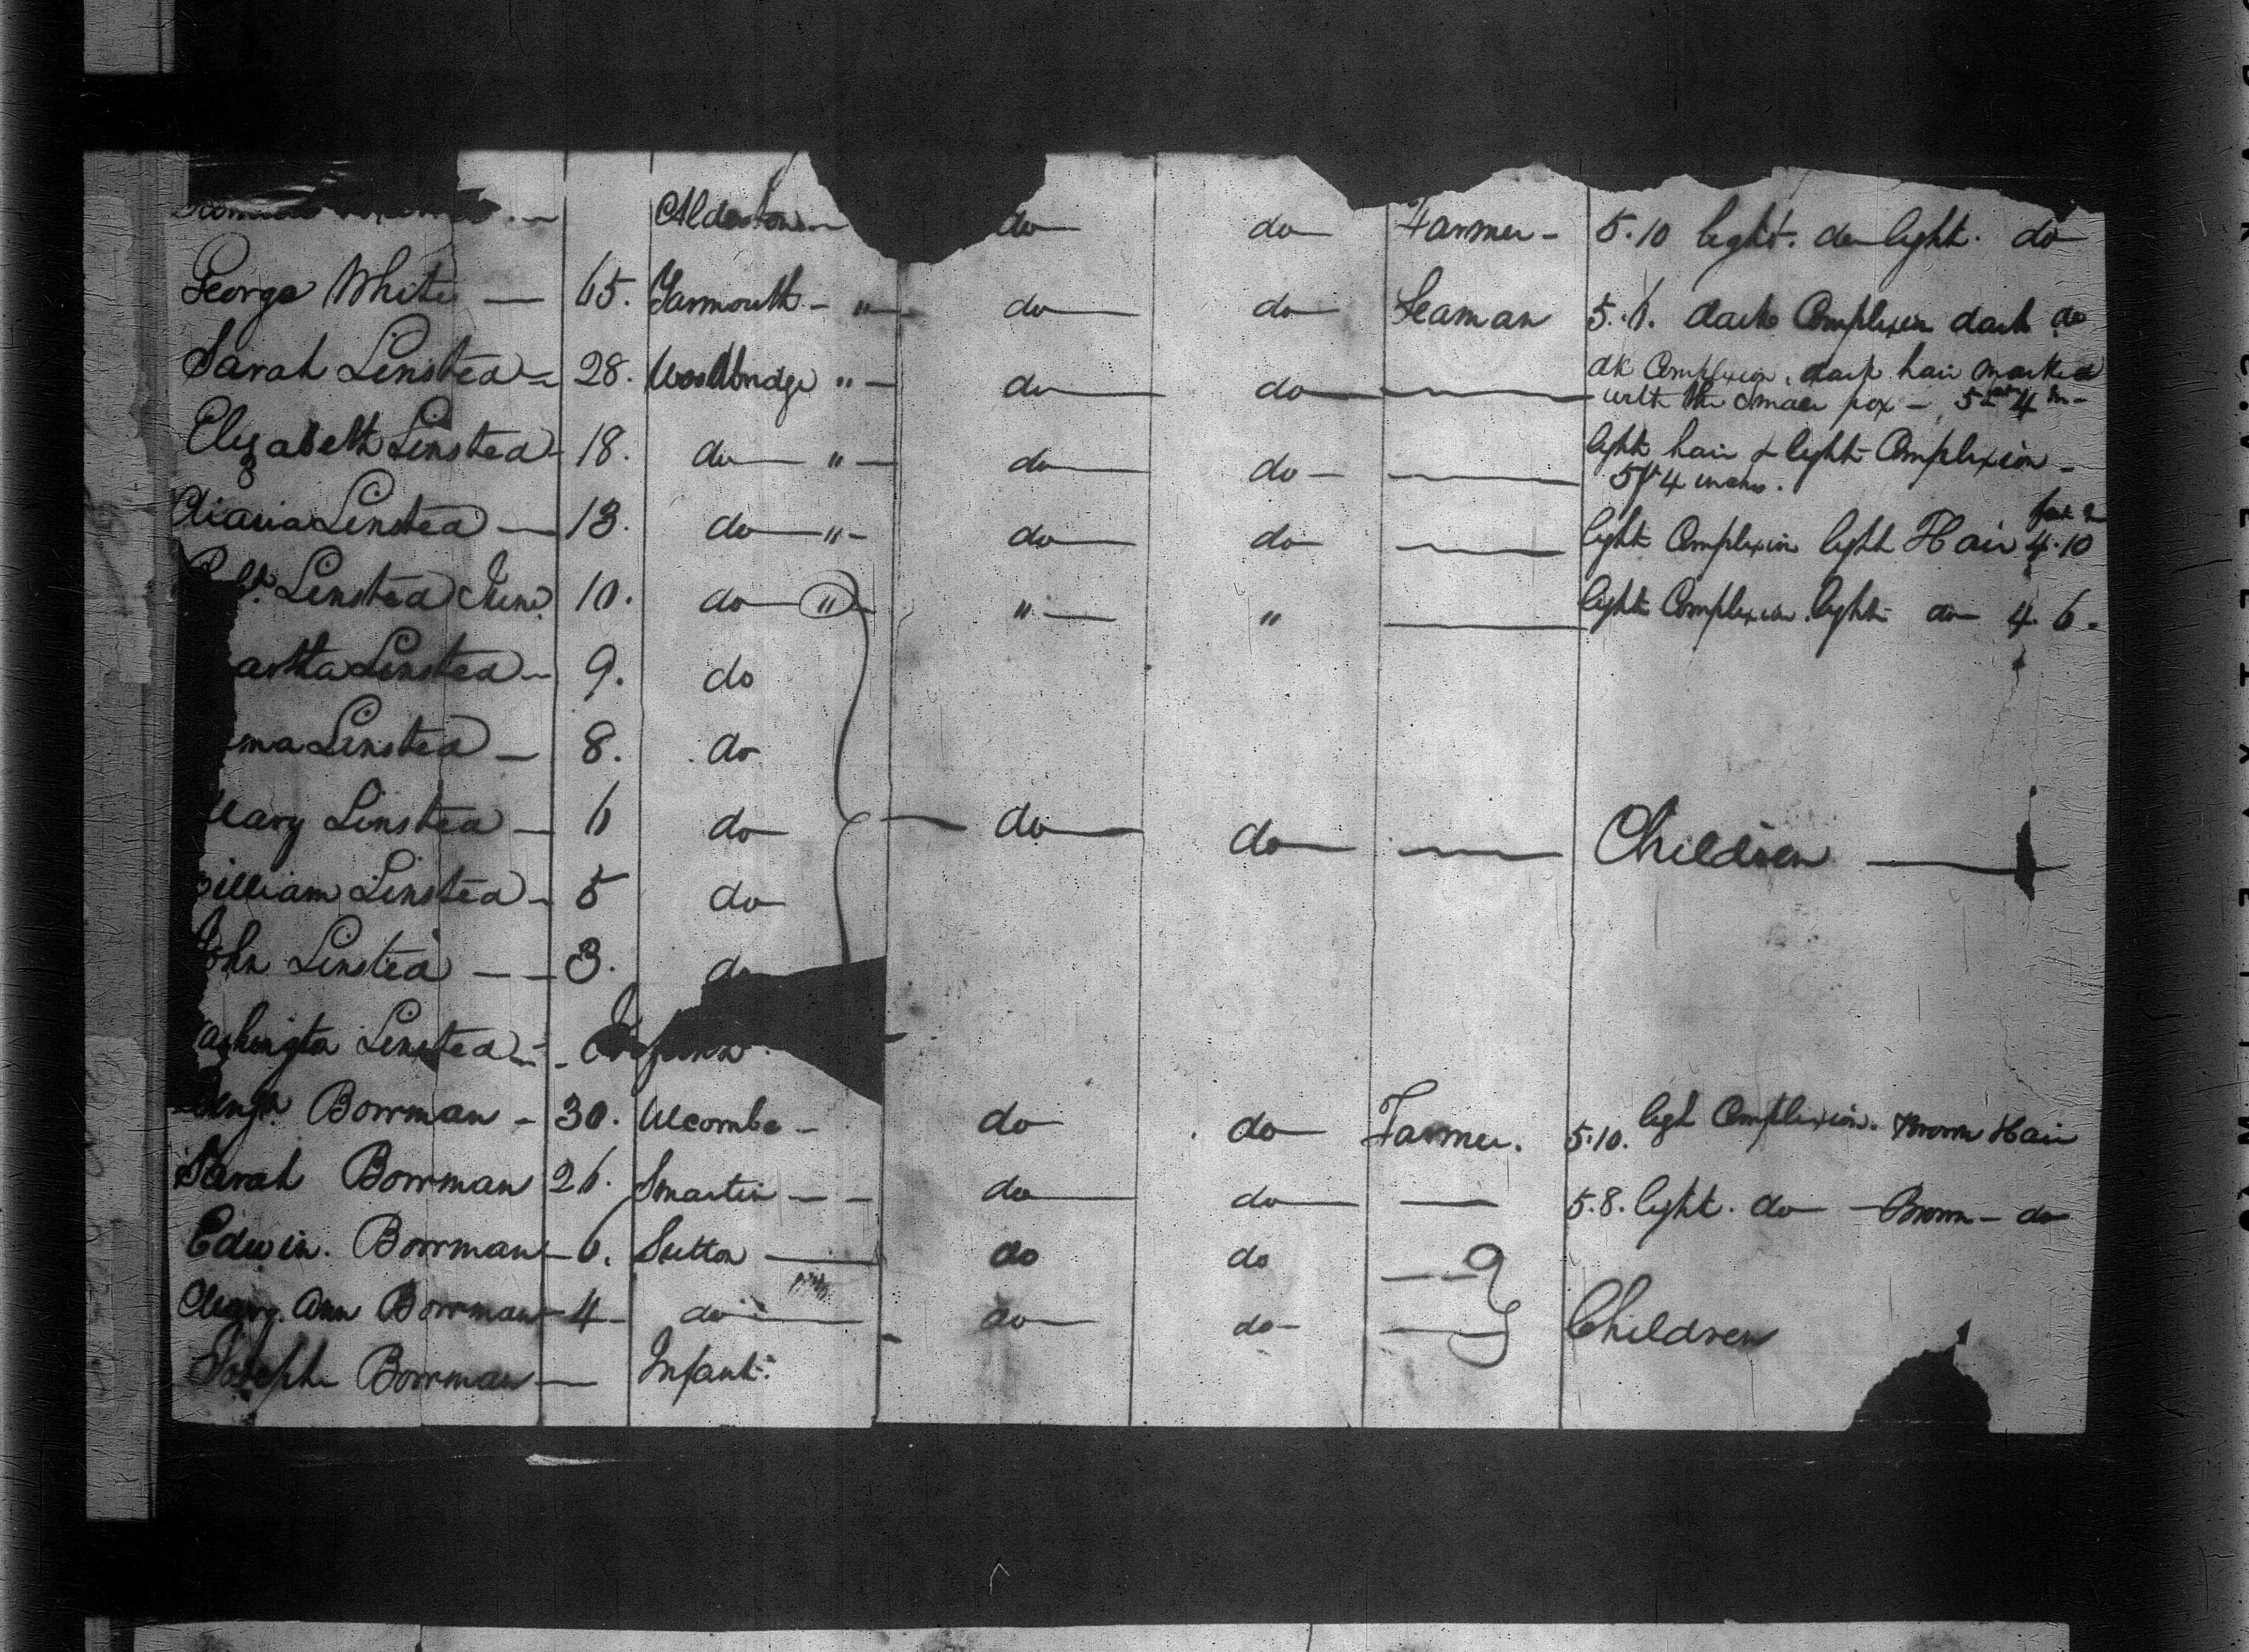 do do Farmer - 5.10 light. do light. do
George White — 65. Yarmouth - " — do — do — Seaman 5.6. dark Complexion dark do
Sarah Linstead — 28. Woodbridge " — do — do — — dk Complexion, dark hair marked
with the small pox — 5 4
Elizabeth Linstead - 18. do — " — do — do — — light hair & light Complexion -
5ft 4 inches.
Linstead — 13. do — " - do — do — light Complexion light Hair 4.10
Linstead Junr 10. do — " — " — " — light Complexion. light do 4. 6.
artha Linstead — 9. do
ma Linstead — 8. do
Mary Linstead — 6 do — do — do — — Children —
William Linstead - 5 do
John Linstead — — 3. do
ashington Linstead - -
Benjn. Borrman - 30. - do do — Farmer. 5.10. ligh Complexion. Brown Hair
Sarah Borrman 26. — — do — do — — 5.8. light. do — Brown - do
Edwin. Borrman - 6. Sutton — do do — —
Ann Borrman - 4 - do — do — do - — Children
Joseph Borrman — Infant.